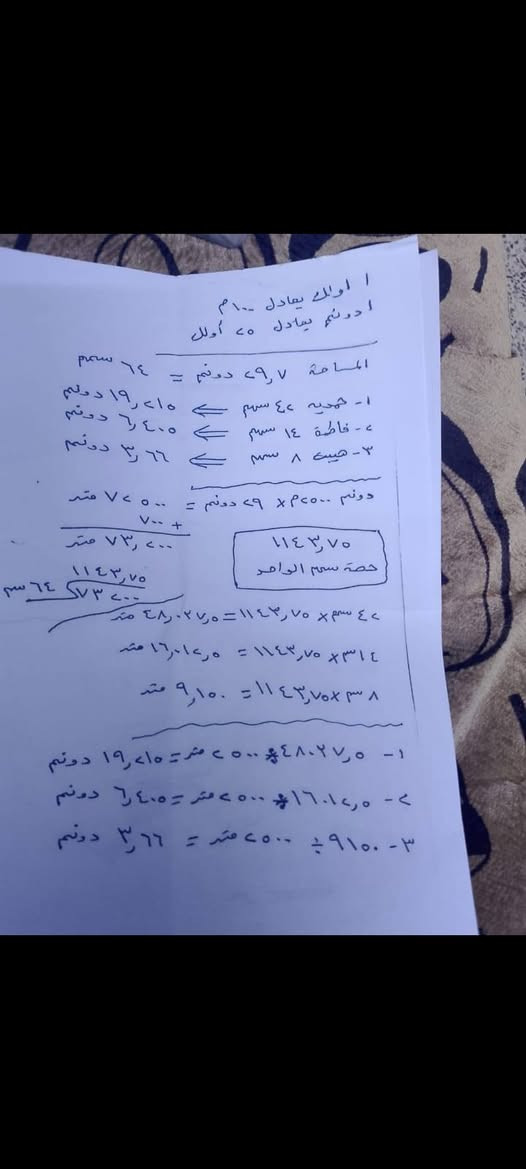 ١ اولك يعادل ١٠٠م
١ دونم يعادل ٢٥ أولك
المساحة ٢٩,٧ دونم = ٦٤ سهم
١- حمديه ٤٢ سهم ⇐ ١٩,٢١٥ دونم
٢- فاطمة ١٤ سهم ⇐ ٦,٤٠٥ دونم
٣- هيبت ٨ سهم ⇐ ٣,٦٦ دونم
دونم ٢٥٠٠م × ٢٩ دونم = ٧٢٥٠٠ متر
+ ٧٠٠
٧٣,٢٠٠ متر
١١٤٣,٧٥
حصة سهم الواحد
١١٤٣,٧٥
٧٣٢٠٠ ٦٤ سهم
٤٢ سهم × ١١٤٣,٧٥ = ٤٨,٠٣٧,٥ متر
١٤ × ١١٤٣,٧٥ = ١٦,٠١٢,٥ متر
٨ سهم × ١١٤٣,٧٥ = ٩,١٥٠ متر
١- ٤٨٠٣٧,٥ ÷ ٢٥٠٠ متر = ١٩,٢١٥ دونم
٢- ١٦٠١٢,٥ ÷ ٢٥٠٠ متر = ٦,٤٠٥ دونم
٣- ٩١٥٠ ÷ ٢٥٠٠ متر = ٣,٦٦ دونم